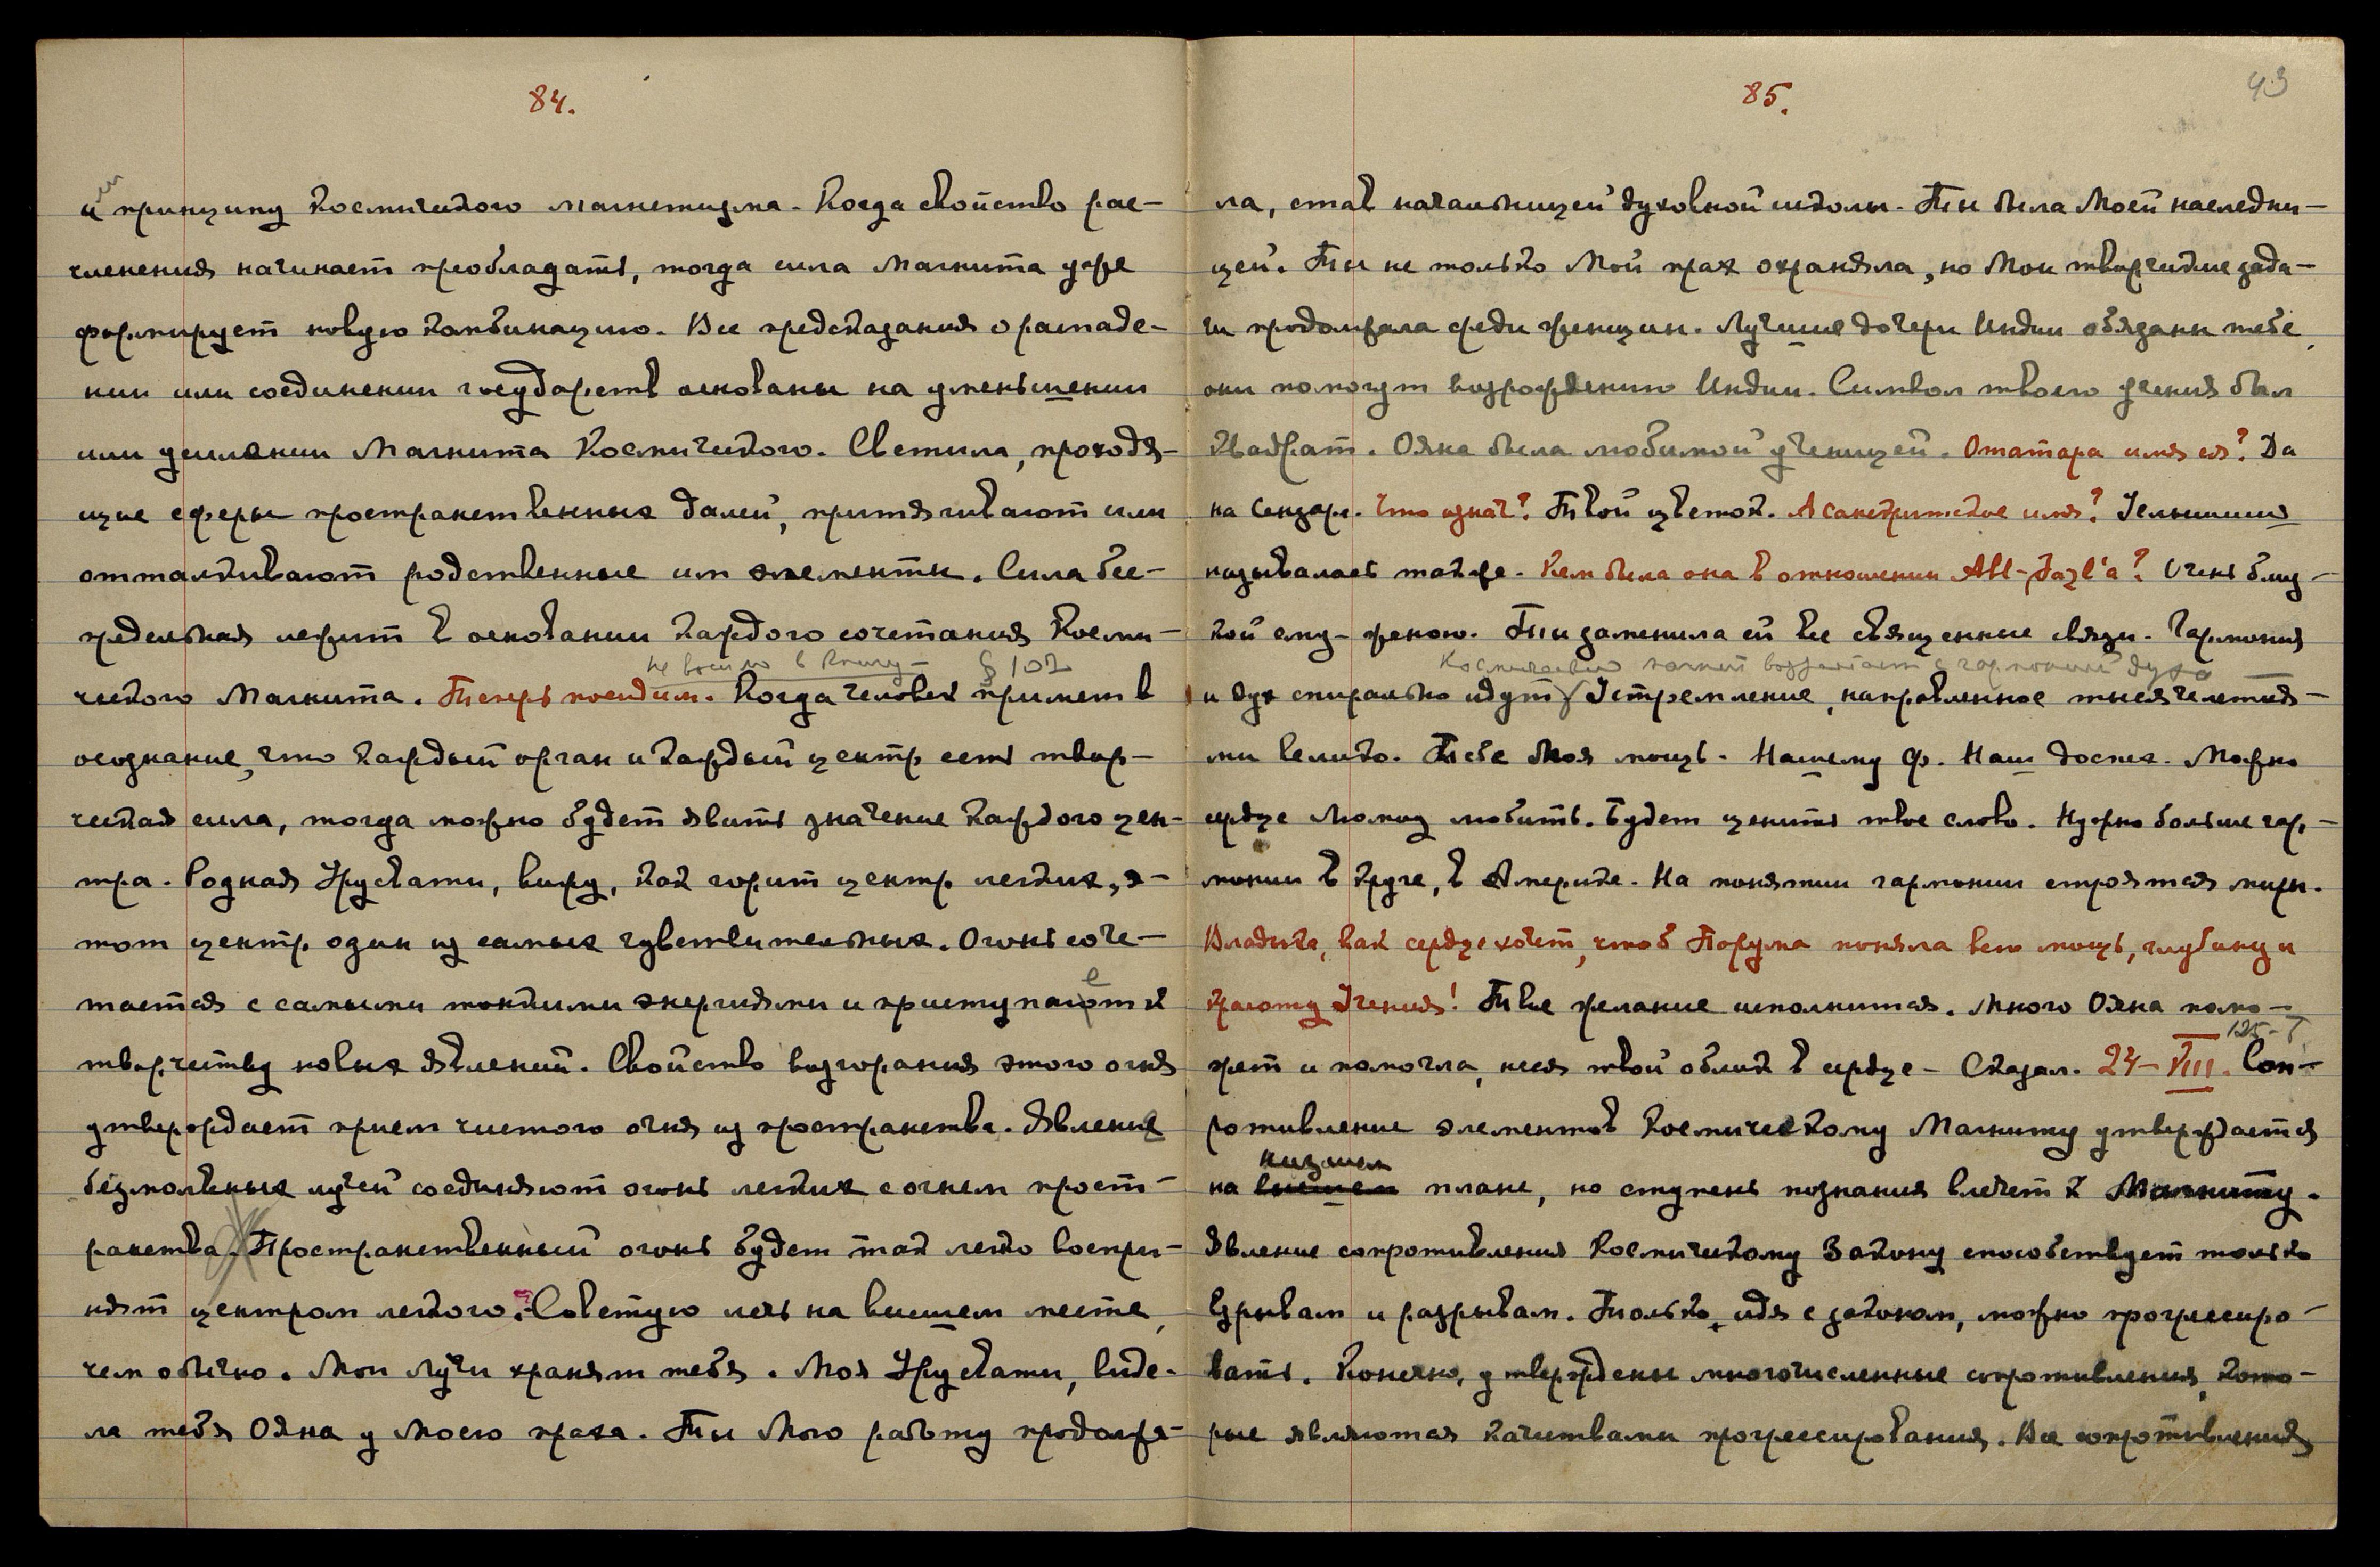 84.
и принципу Космического магнетизма. Когда свойство рас-
членения начинает преобладать, тогда сила Магнита уже
формирует новую комбинацию. Все предсказания о распаде-
нии или соединении государств основаны на уменьшении
или усилении Магнита Космического. Светила, проходя-
щие сферы пространственных далей, притягивают или
отталкивают родственные им элементы. Сила бес-
предельная лежит в основании каждого сочетания Косми-
не вошло в книгу - § 102
ческого Магнита. Теперь посидим. Когда человек примет в
осознание, что каждый орган и каждый центр есть твор-
ческая сила, тогда можно будет явить значение каждого цен-
тра. Родная Урусвати, вижу, как горит центр легких, э-
тот центр один из самых чувствительных. Огонь соче-
тается с самыми тонкими энергиями и приступает к
творчеству новых явлений. Свойство возгорания этого огня
утверждает прием чистого огня из пространства. Явление
безмолвных лучей соединяют огонь легких с огнем прост-
ранства. Пространственный огонь будет так легко воспри-
нят центром легкого. Советую лечь на высшем месте,
чем обычно. Мои Лучи хранят тебя. Моя Урусвати, виде-
ла тебя Ояна у Моего праха. Ты Мою работу продолжа-
85.
43
ла, став начальницей духовной школы. Ты была Моей наследни-
цей. Ты не только Мой прах охраняла, но Мои творческие зада-
чи продолжала среди женщин. Лучшие дочери Индии обязаны тебе,
они помогут возрождению Индии. Символ твоего учения был
квадрат. Ояна была любимой ученицей. Отатара имя ея? Да
на Сензар. Что означ? Твой цветок. А санскритское имя?
называлась также. Кем была она в отношении Abl-Fazl'a? Очень близ-
кой ему - женою. Ты заменила ей все священные связи. Гармония
Космический магнит возрастает с гармонией духа
и дух спирально идут. Устремление, направленное тысячелетия-
ми велико. Тебе Моя мощь. Нашему Ф. Наш доспех. Можно
сердце любить. Будем ценить твое слово. Нужно больше гар-
монии в круге, в Америке. На понятии гармонии строятся миры.
Владыка, как сердце хочет, чтоб Порума поняла всю мощь, глубину и
красоту Учения! Твое желание исполнится. Много Ояна помо-
125-
жет и помогла, неся твой облик в сердце - Сказал. 24-VIII. Соп-
ротивление элементов Космическому Магниту утверждается
низшем
на внешнем плане, но ступень познания влечет к Магниту.
Явление сопротивления Космическому Закону способствует только
взрывам и разрывам. Только, идя с законом, можно прогрессиро-
вать. Конечно, утверждены многочисленные сопротивления, кото-
рые являются качествами прогрессирования. Все сопротивления